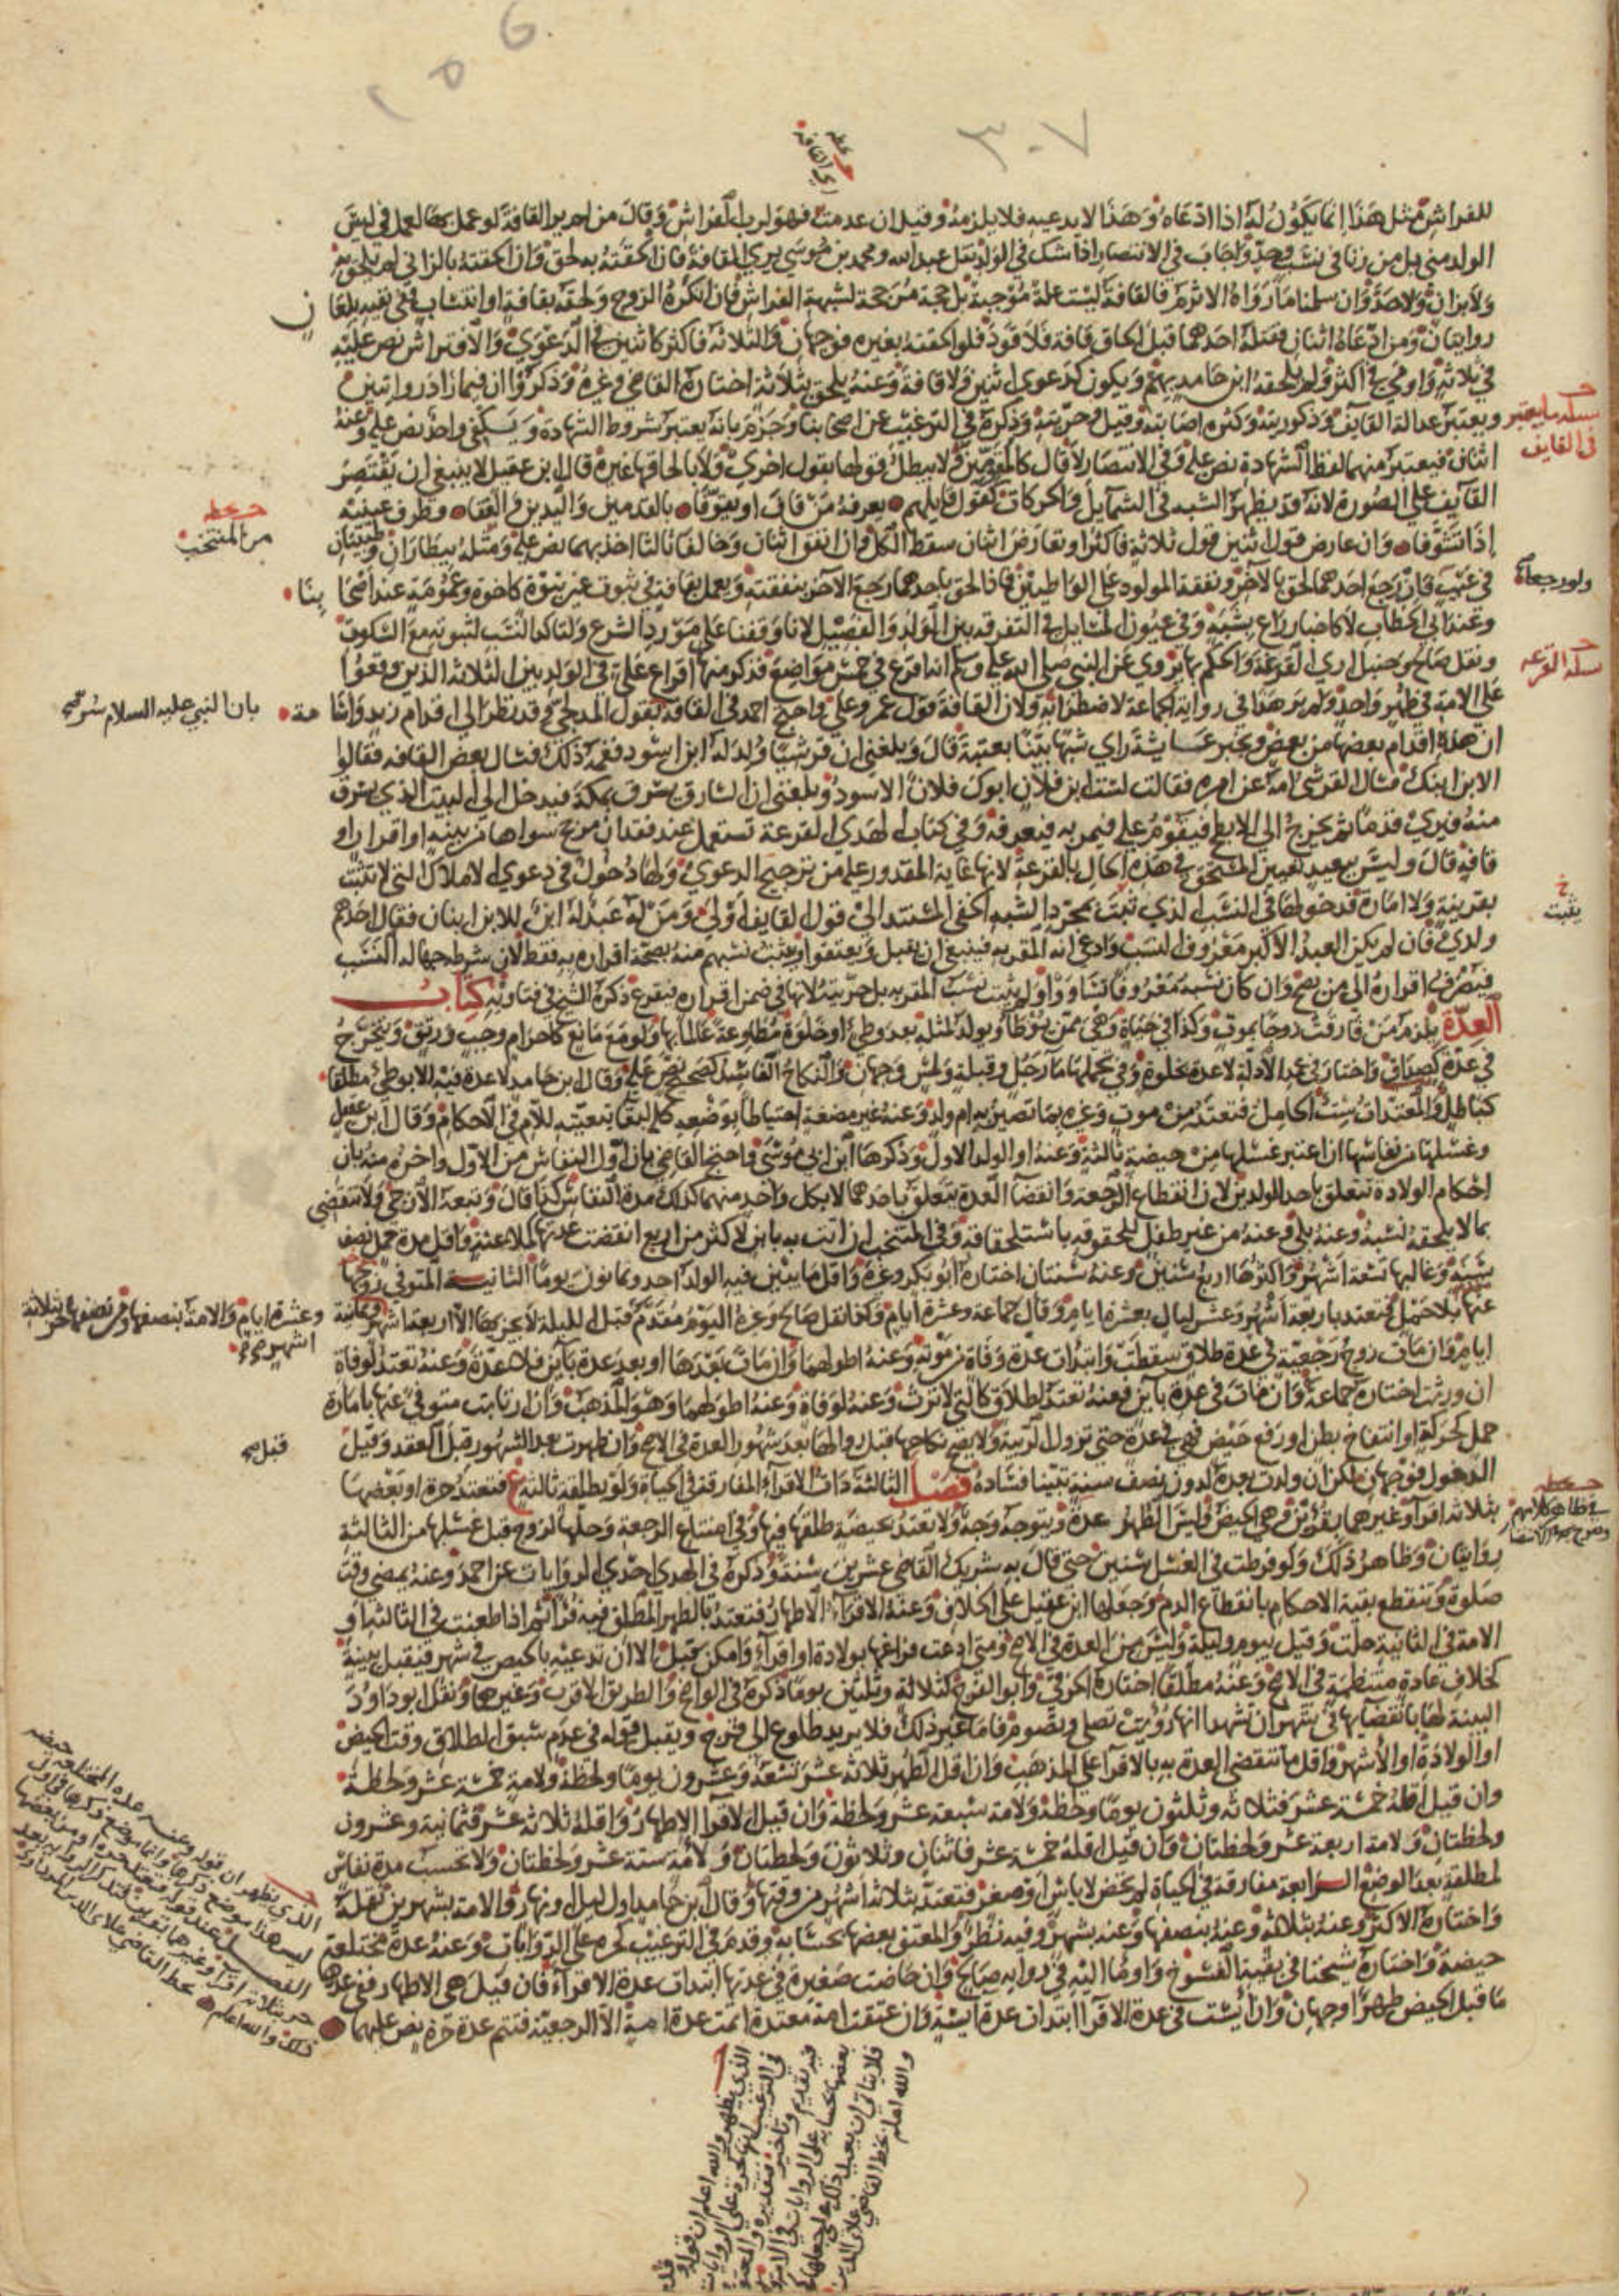 للفراش مثل هذا انما يكون له اذا ادعاه وهذا لا يدعيه فلا يلزمه وقيل ان عدمت فهو لرب الفراش وقال من لم ير القافة لو عمل بها لعمل في ليس
الولد مني بل من زنا في نسب وحد واجاب في الانتصار اذا شك في الولد نقل عبد الله ومحمد بن موسى يرى القافة فان الحقته به لحق وان الحقته بالزاني لم يلحق به
ولا بزان ولا حد وان سلمنا ما رواه الاثرم فالقافة ليست علة موجبة بل حجة مرجحة لشبهة الفراش فان انكره الزوج ولحقه بقافة او انتساب ففي نفيه بلعان
روايتان ومن ادعاه اثنان فقتله احدهما قبل الحاق قافة فلا قود فلو الحقته بغيره فوجهان والثلاثة فاكثر كاثنين في الدعوى والافتراش نص عليه
في ثلاثة واومى في اكثر ولم يلحقه ابن حامد بهم ويكون كدعوى اثنين ولا قافة وعنه يلحق بثلاثة اختاره القاضي وغيره وذكروا ان فيما زاد روايتين
ويعتبر عدالة القايف وذكوريته وكثرة اصابته وقيل وحريته وذكره في الترغيب عن اصحابنا وجزم بانه يعتبر شروط الشهادة ويكفي واحد نص عليه وعنه
مسئلة ما يعتبر
في القايف
اثنان فيعتبر منهما لفظ الشهادة نص عليه وفي الانتصار لا قال كالمقومين ولا يبطل قولها بقول اخرى ولا بالحاقها غيره قال ابن عقيل لا ينبغي ان يقتصر
القايف على الصورة لانه قد يظهر الشبه في الشمايل والحركات كقول قايلهم يعرفه من قاف او تقوفا بالقدمين واليدين والقفا وطرف عينيه
من المنتخب
اذا تشوفا وان عارض قول اثنين قول ثلاثة فاكثر او تعارض اثنان سقط الكل وان اتفق اثنان وخالفا ثالثا اخذ بهما نص عليه ومثله بيطاران وطبيبان
في عيب فان رجع احدهما لحق بالآخر ونفقة المولود على الواطيين فاذا لحق باحدهما رجع الآخر بنفقته ويعمل بقافة في ثبوت غير بنوة كاخوة وعمومة عند اصحابنا
وعند ابي الخطاب لا كاخبار راع بشبه وفي عيون المسايل في التفرقة بين الولد والفصيل لانا وقفنا على مورد الشرع ولتاكد النسب لثبوته مع السكوت
ونقل صالح وحنبل ارى القرعة والحكم بها يروى عن النبي صلى الله عليه وسلم انه اقرع في خمس مواضع فذكر منها اقراع علي في الولد بين الثلاثة الذين وقعوا
مسئلة القرعة
على الامة في طهر واحد ولم ير هذا في رواية الجماعة لاضطرابه ولان القافة قول عمر وعلي واحتج احمد في القافة بقول المدلجي قد نظر الى اقدام زيد واسامة
بان النبي عليه السلام سر صح
ان هذه اقدام بعضها من بعض وبخبر عايشة راى شبها بينا بعتبة قال وبلغني ان قرشيا ولد له ابن اسود فغمه ذلك فسال بعض القافة فقالوا
الابن ابنك فسال القرشي امه عن امره فقالت لست ابن فلان ابوك فلان الاسود وبلغني ان السارق يسرق بمكة فيدخل الى البيت الذي يسرق
منه فيرى قدمه ثم يخرج الى الابطح فيقوم عليه فيمر به فيعرفه وفي كتاب الهدي القرعة تستعمل عند فقدان مرجح سواها من بينة او اقرار او
قافة قال وليس ببعيد تعيين المستحق في هذه الحال بالقرعة لانها غاية المقدور عليه من ترجيح الدعوى ولها دخول في دعوى الاملاك التي لا تثبت
يثبت
بقرينة ولا امارة فدخولها في النسب الذي تثبت بمجرد الشبه الخفي المستند الى قول القايف اولى ومن له عبد له ابن للابن ابنان فقال احدهم
ولدي فان لم يكن العبد الاكبر معروف النسب وادعى انه المقر به فينبغي ان يقبل ويعتقوا ويثبت نسبهم منه بصحة اقراره به فقط لان شرطه جهالة النسب
فيصرف اقراره الى من يصح وان كان نسبه معروفا تساووا ولم يثبت نسب المقر به بل حريته لانها في ضمن اقراره فيقرع ذكره الشيخ في فتاويه كتاب
العدة يلزم من فارقت زوجا بموت وكذا في حياة وهي ممن يوطا ويولد لمثله بعد وطئ او خلوة مطاوعة عالما بها ولو مع مانع كاحرام وجب ورتق ويتخرج
في عدة كصداق واختار في عمد الادلة لا عدة بخلوة وفي تحملها ماء رجل وقبلة ولمس وجهان والنكاح الفاسد كصحيح نص عليه وقال ابن حامد لا عدة فيه الا بوطئ مطلقا
كباطل والمعتدات ست الحامل فتعتد من موت وغيره بما تصير به ام ولد وعنه غير مضغة احتياطا بوضعه كله لبقا تبعيته للام في الاحكام وقال ابن عقيل
وغسلها من نفاسها ان اعتبر غسلها من حيضة ثالثة وعنه او الولد الاول وذكرها ابن ابي موسى واحتج القاضي بان اول النفاس من الاول واخره منه بان
احكام الولادة تتعلق باحد الولدين لان انقطاع الرجعة وانقضا العدة يتعلق باحدهما لا بكل واحد منهما كذلك مدة النفاس كذا قال وتبعه الازجي ولا تنقضي
بما لا يلحقه لشبه وعنه بلى وعنه من غير طفل للحوقه باستلحاقه وفي المنتخب ان اتت به باين لاكثر من اربع انقضت عدتها كملاعنة واقل مدة حمل نصف
سنة وغالبها تسعة اشهر واكثرها اربع سنين وعنه سنتان اختاره ابو بكر وغيره واقل ما يتبين فيه الولد احد وثمانون يوما الثانية المتوفى زوجها
عنها بلا حمل فتعتد باربعة اشهر وعشر ليال بعشرة ايام وقال جماعة وعشرة ايام وكذا نقل صالح وغيره اليوم مقدم قبل الليلة لا يجزيها الا اربعة اشهر
وعشرة ايام والامة بنصفها ومن نصفها حر بثلاثة
اشهر
ايام وان مات زوج رجعية في عدة طلاق سقطت وابتدات عدة وفاة من موته وعنه اطولهما وان مات بعدها او بعد عدة باين فلا عدة وعنه تعتد لوفاة
ان ورثت اختاره جماعة وان مات في عدة باين فعنه تعتد لطلاق كالتي لا ترث وعنه لوفاة وعنه اطولهما وهو المذهب وان ارتابت متوفى عنها بامارة
حمل كحركة او انتفاخ بطن او رفع حيض فهي في عدة حتى تزول الريبة ولا يصح نكاحها قبل زوالها بعد شهور العدة في الاصح وان ظهرت بعد الشهور قبل العقد وقيل
قبل صح
الدخول فوجهان لكن ان ولدت بعده لدون نصف سنة تبينا فساده فصل الثالثة ذات الاقراء المفارقة في الحياة ولو بطلقة ثالثة فتعتد حرة او بعضها
بثلاثة اقراء وغيرهما بقرئين وهي الحيض وليس الطهر عدة ويتوجه وجه ولا تعتد بحيضة طلقها فيها وفي امتناع الرجعة وحلها لزوج قبل غسلها من الثالثة
روايتان وظاهر ذلك ولو فرطت في الغسل سنين حتى قال به شريك القاضي عشرين سنة وذكره في الهدي احدى الروايات عن احمد وعنه بمضي وقت
صلوة وتنقطع بقية الاحكام بانقطاع الدم وجعلها ابن عقيل على الخلاف وعنه الاقراء الاطهار فتعتد بالطهر المطلق فيه قرءا ثم اذا طعنت في الثالثة او
الامة في الثانية حلت وقيل بيوم وليلة وليس من العدة في الاصح ومتى ادعت فراغها بولادة او اقراء وامكن قبل الا ان تدعيه بالحيض في شهر فيقبل ببينة
كخلاف عادة منتظمة في الاصح وعنه مطلقا اختاره الخرقي وابو الفرج كثلاثة وثلثين يوما ذكره في الواضح والطريق الاقرب وغيرهما ونقل ابو داود
البينة لها بانقضائها في شهر ان تشهد انها رؤيت تصلي وتصوم فاما غير ذلك فلا يريد طلوع الى فرج ويقبل قوله في عدم سبق الطلاق وقت الحيض
او الولادة او الاشهر واقل ما تنقضي العدة به بالاقراء على المذهب وان اقل الطهر ثلاثة عشر تسعة وعشرون يوما ولحظة ولامة خمسة عشر ولحظة
وان قيل اقله خمسة عشر فثلاثة وثلثون يوما ولحظة ولامة سبعة عشر ولحظة وان قيل الاقراء الاطهار واقله ثلاثة عشر فثمانية وعشرون
ولحظتان ولامة اربعة عشر ولحظتان وان قيل اقله خمسة عشر فاثنان وثلاثون ولحظتان ولامة ستة عشر ولحظتان ولا تحسب مدة نفاس
لمطلقة بعد الوضع الرابعة مفارقة في الحياة لم تحض لاياس او صغر فتعتد بثلاثة اشهر من وقتها وقال ابن حامد اول ليل او نهار والامة بشهرين نقله
واختاره الاكثر وعنه بثلاثة وعنه بنصفها وعنه بشهر وفيه نظر والمعتق بعضها بحسابه وقدم في الترغيب كحرة على الروايات وعنه عدة مختلعة
حيضة واختاره شيخنا في بقية الفسوخ واومأ اليه في رواية صالح وان حاضت صغيرة في عدتها ابتدات عدة الاقراء فان قيل هي الاطهار ففي عدها
ما قبل الحيض طهرا وجهان وان ايست في عدة الاقراء ابتدات عدة ايسة وان عتقت امة معتدة اتمت عدة امة الا الرجعية فتتم عدة حرة نص عليهما